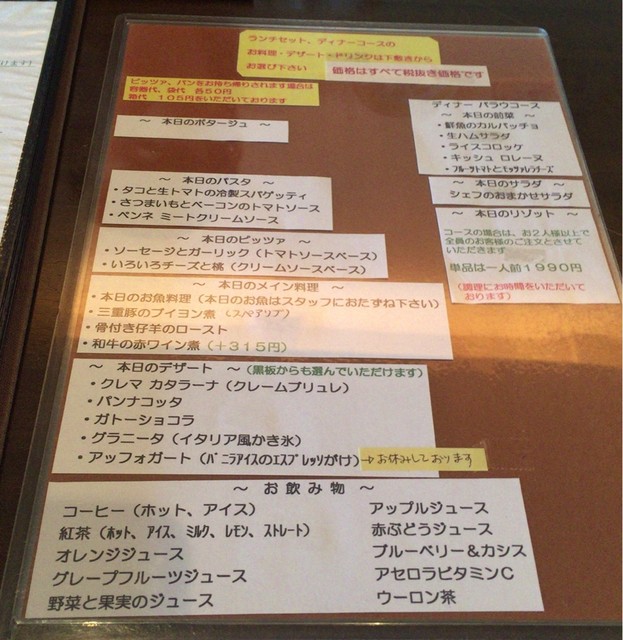 ランチセット、ディナーコースの
お料理・デザート・ドリンクは下敷きから
お選び下さい
価格はすべて税抜き価格です
ピッツァ、パンをお持ち帰りされます場合は
容器代、袋代 各50円
箱代 105円をいただいております
～ 本日のポタージュ ～
～ 本日のパスタ ～
・タコと生トマトの冷製スパゲッティ
・さつまいもとベーコンのトマトソース
・ペンネ ミートクリームソース
～ 本日のピッツァ ～
・ソーセージとガーリック（トマトソースベース）
・いろいろチーズと桃（クリームソースベース）
～ 本日のメイン料理 ～
・本日のお魚料理（本日のお魚はスタッフにおたずね下さい）
・三重豚のブイヨン煮（スペアリブ）
・骨付き仔羊のロースト
・和牛の赤ワイン煮（＋315円）
～ 本日のデザート ～（黒板からも選んでいただけます）
・クレマ カタラーナ（クレームブリュレ）
・パンナコッタ
・ガトーショコラ
・グラニータ（イタリア風かき氷）
・アッフォガート（バニラアイスのエスプレッソがけ）→お休みしております
ディナー パラウコース
～ 本日の前菜 ～
・鮮魚のカルパッチョ
・生ハムサラダ
・ライスコロッケ
・キッシュ ロレーヌ
・フルーツトマトとモッツァレラチーズ
～ 本日のサラダ ～
シェフのおまかせサラダ
～ 本日のリゾット ～
コースの場合は、お2人様以上で
全員のお客様のご注文とさせて
いただきます
単品は一人前1990円
（調理にお時間をいただいて
おります）
～ お飲み物 ～
コーヒー（ホット、アイス）
紅茶（ホット、アイス、ミルク、レモン、ストレート）
オレンジジュース
グレープフルーツジュース
野菜と果実のジュース
アップルジュース
赤ぶどうジュース
ブルーベリー＆カシス
アセロラビタミンC
ウーロン茶